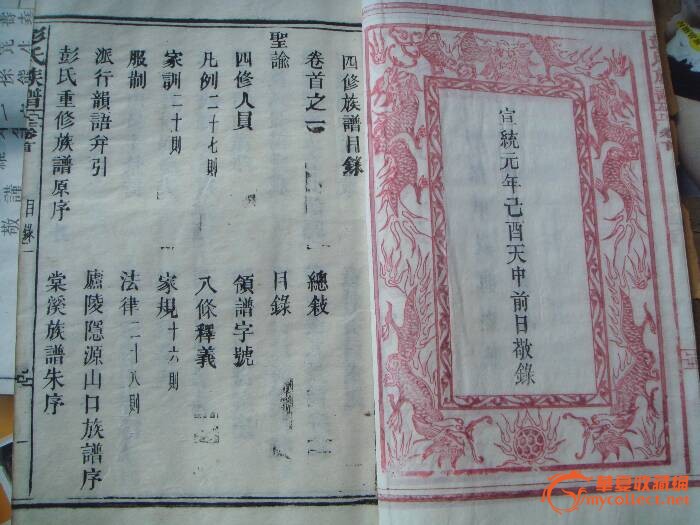 宣統元年己酉天中前日敬錄
四修族譜目錄
卷首之一 總敘
聖諭 目錄
四修人員 領譜字號
凡例二十七則 八條釋義
家訓二十則 家規十六則
服制 法律二十八則
派行韻語弁引 廬陵隱源山口族譜序
彭氏重修族譜原序 棠溪族譜朱序
彭氏族譜 卷首 目錄 一
敬謹
華夏收藏網
mycollect.net